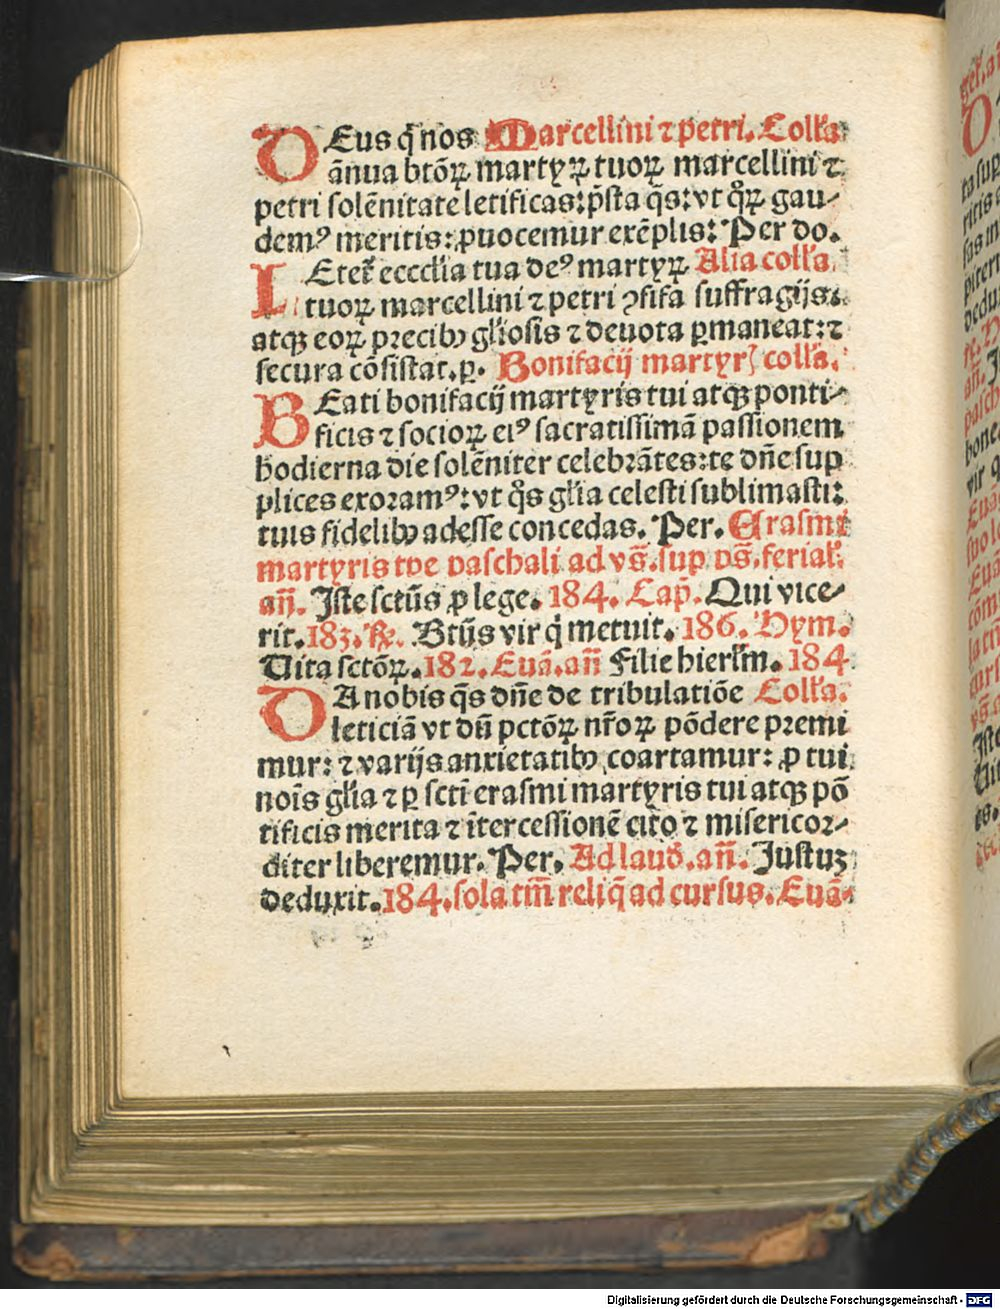 DEus q̃ nos Marcellini ⁊ petri. Coll'a
ãnua btõꝝ martyꝝ tuoꝝ marcellini ⁊
petri solẽnitate letificas: p̃sta q̃s: vt qͦꝝ gau⸗
demꝰ meritis: ꝓuocemur exẽplis: Per do.
LEtet᷑ ecccl'ia tua deꝰ martyꝝ Alia coll'a
tuoꝝ marcellini ⁊ petri ꝯfisa suffragijs:
atqꝫ eoꝝ precibꝰ gl'iosis ⁊ deuota ꝑmaneat: ⁊
secura cõsistat. ꝑ. Bonifacij martyr' coll'a.
BEati bonifacij martyris tui atqꝫ ponti⸗
ficis ⁊ socioꝝ eiꝰ sacratissimã passionem
hodierna die solẽniter celebrãtes: te dñe sup
plices exoramꝰ: vt q̃s gl'ia celesti sublimasti:
tuis fidelibꝰ adesse concedas. Per. Erasmi
martyris tpe paschali ad vs̃. sup ps̃. ferial'.
añ. Iste sctũs ꝓ lege. 184. Cap̃. Qui vice⸗
rit. 183. ꝶ. Btũs vir q̇ metuit. 186. Hym.
Uita sctõꝝ. 182. Euã. añ Filie hierl'm. 184
DA nobis q̃s dñe de tribulatiõe Coll'a.
leticiã vt dũ pctõꝝ nr̃oꝝ põdere premi
mur: ⁊ varijs anxietatibꝰ coartamur: ꝓ tui
noĩs gl'ia ⁊ ꝑ scti erasmi martyris tui atqꝫ põ
tificis merita ⁊ ĩtercessionẽ cito ⁊ misericor⸗
diter liberemur. Per. Ad laud'. añ. Justuꝫ
deduxit. 184. sola tm̃ reliq̃ ad cursus. Euã⸗
Digitalisierung gefördert durch die Deutsche Forschungsgemeinschaft - DFG